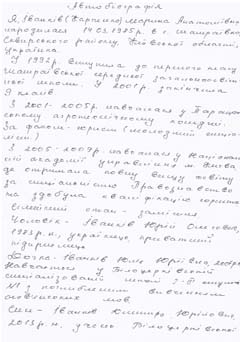 Автобіографія
Я, Іванків (Харченко) Марина Анатоліївна
народилася 14.03.1985р. в с. Шамраївка,
Сквирського району, Київської області,
Україна.
У 1992р. вступила до першого класу
Шамраївської середньої загальноосвіт
ньої школи. У 2001р. закінчила
9 класів.
З 2001-2005р. навчалася у
агроекономічному коледжі.
За фахом - юрист (молодший спеціа
ліст)
З 2005-2009р. навчалася у Націонал
ній академії управління м. Києва
де отримала повну вищу освіту
за спеціальністю Правознавство
та здобула кваліфікацію юриста
Сімейний стан - заміжня
Чоловік - Іванків Юрій Олегович,
1983р.н., українець, приватний
підприємець
Дочка - Іванків Юлія Юріївна,
Навчається у Білоцерківській
спеціалізованій школі І-ІІ ступенів
№1 з поглибленим вивченням
іноземних мов.
Син - Іванків Юрійович,
2013р.н., учень Білоцерківської